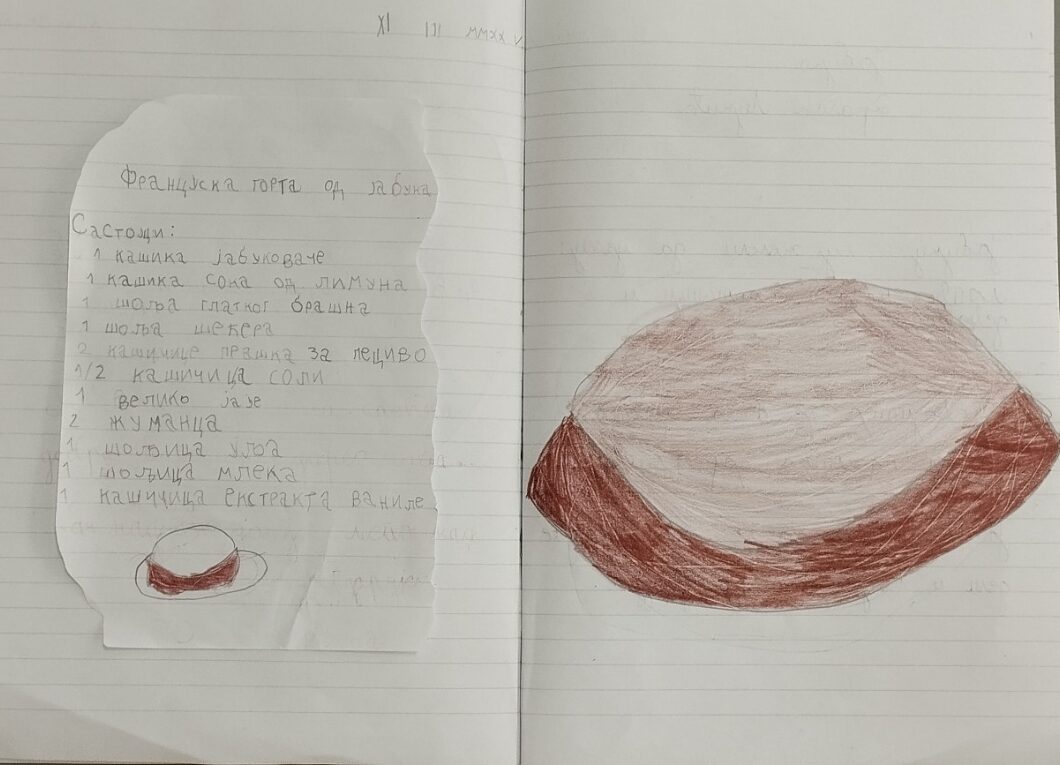 XI III MMXXV.
Француска торта од јабука
Састојци:
1 кашика јабуковаче
1 кашика сока од лимуна
1 шоља глатког брашна
1 шоља шекера
2 кашичице прашка за пециво
1/2 кашичица соли
1 велико јаје
2 жуманца
1 шољица уља
1 шољица млека
1 кашичица екстракта ваниле